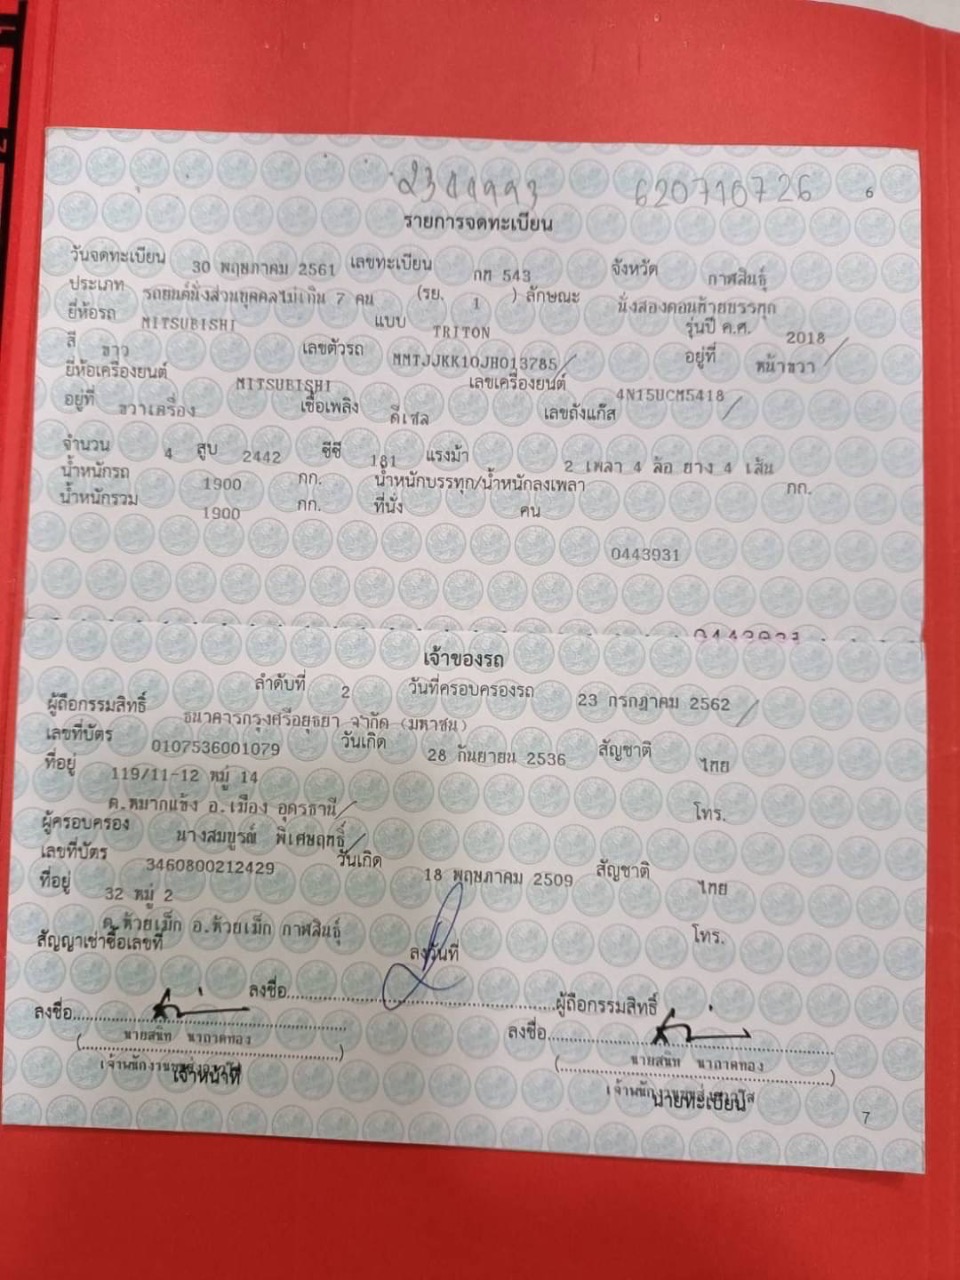 2344993 620710726 6
รายการจดทะเบียน
วันจดทะเบียน 30 พฤษภาคม 2561 เลขทะเบียน กท 543 จังหวัด กาฬสินธุ์
ประเภท รถยนต์นั่งส่วนบุคคลไม่เกิน 7 คน (รย. 1 ) ลักษณะ นั่งสองตอนท้ายบรรทุก
ยี่ห้อรถ MITSUBISHI แบบ TRITON รุ่นปี ค.ศ. 2018
สี ขาว เลขตัวรถ MMTJJKK10JH013785 อยู่ที่ หน้าขวา
ยี่ห้อเครื่องยนต์ MITSUBISHI เลขเครื่องยนต์ 4N15UCM5418
อยู่ที่ ขวาเครื่อง เชื้อเพลิง ดีเซล เลขถังแก๊ส
จำนวน 4 สูบ 2442 ซีซี 181 แรงม้า 2 เพลา 4 ล้อ ยาง 4 เส้น
น้ำหนักรถ 1900 กก. น้ำหนักบรรทุก/น้ำหนักลงเพลา กก.
น้ำหนักรวม 1900 กก. ที่นั่ง คน
0443931
เจ้าของรถ
ลำดับที่ 2 วันที่ครอบครองรถ 23 กรกฎาคม 2562
ผู้ถือกรรมสิทธิ์ ธนาคารกรุงศรีอยุธยา จำกัด (มหาชน)
เลขที่บัตร 0107536001079 วันเกิด 28 กันยายน 2536 สัญชาติ ไทย
ที่อยู่ 119/11-12 หมู่ 14
ต.หมากแข้ง อ.เมือง อุดรธานี โทร.
ผู้ครอบครอง นางสมบูรณ์ พิเศษฤทธิ์
เลขที่บัตร 3460800212429 วันเกิด 18 พฤษภาคม 2509 สัญชาติ ไทย
ที่อยู่ 32 หมู่ 2
ต.ห้วยเม็ก อ.ห้วยเม็ก กาฬสินธุ์ โทร.
สัญญาเช่าซื้อเลขที่ ลงวันที่
ลงชื่อ ผู้ถือกรรมสิทธิ์
ลงชื่อ ลงชื่อ
(นายสนิท นาถาดทอง) (นายสนิท นาถาดทอง)
เจ้าหน้าที่ นายทะเบียน
7